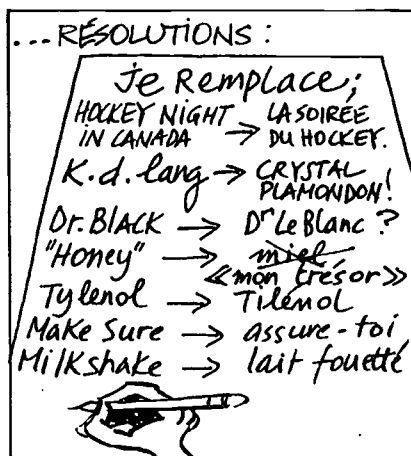 ... RÉSOLUTIONS :
Je Remplace;
HOCKEY NIGHT IN CANADA → LA SOIRÉE DU HOCKEY.
K.d. lang → CRYSTAL PLAMONDON!
Dr. BLACK → Dr Le Blanc ?
"Honey" → miel
«mon trésor»
Tylenol → Tilénol
Make Sure → assure-toi
Milkshake → lait fouetté